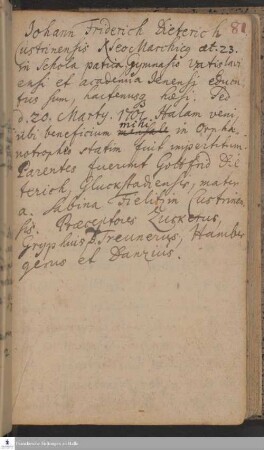 81
Johann Friderich Dieterich
Custrinensis Neo Marchicq æt. 23.
in Schola patria gymnasio Vratislavi
ensi et academia Jenensi educa
tus sum, hactenusq hæsi. Sed
d. 20. Martij. 1706. Halam veni,
ubi beneficium mensale mihi in Orpha
notropheo statim fuit impertitum.
Parentes fuerunt Gottfrid Die
terich, Gluckstadiensis, mater
a. Sabina Custrinen
sis. Præceptores Zuskerus,
Gryphius, Treunerus, Hamber
gerus et Danzius.